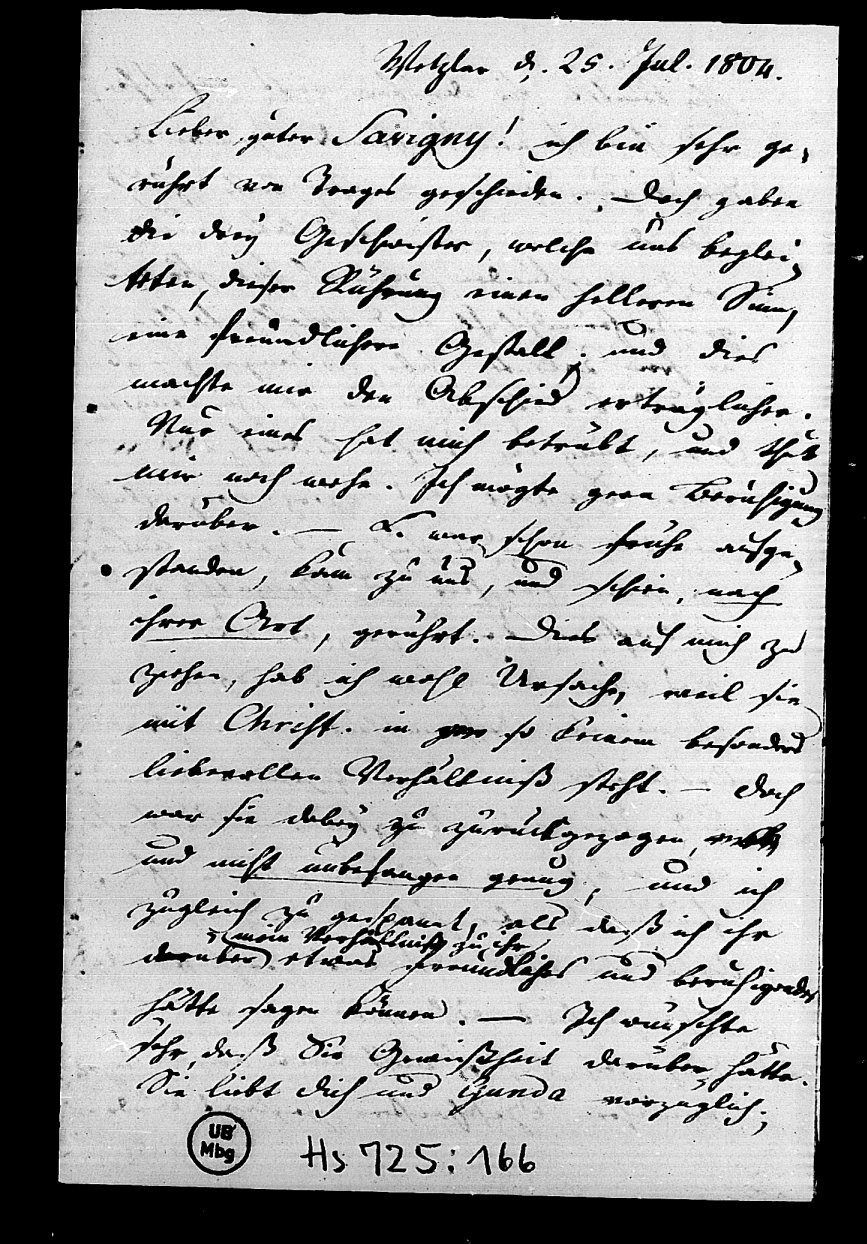 Wetzlar d. 25. Jul. 1804.
Lieber guter Savigny! ich bin sehr ge-
rührt von Trages geschieden. Doch gaben
die drey Geschwister, welche uns beglei-
teten, dieser Rührung einen helleren Sinn,
eine freundlichere Gestalt; und dies
machte mir den Abschied erträglicher.
Nur eines hat mich betrübt, und thut
mir noch wehe. Ich mögte gern Beruhigung
darüber. — L. war schon frühe aufge-
standen, kam zu uns, und schien, nach
ihrer Art, gerührt. Dies auf mich zu
ziehen, hab ich wohl Ursache, weil sie
mit Christ. in so keinem besonders
liebevollen Verhältniß steht. — Doch
war sie dabey zu zurückgezogen,
und nicht unbefangen genug, und ich
zugleich zu gespannt, als daß ich ihr
mein Verhältniß zu ihr
darüber etwas freundliches und beruhigendes
hätte sagen können. — Ich wünschte
sehr, daß Sie Gewißheit darüber hätte.
Sie liebt dich und Gunda vorzüglich;
UB
Mbg
Hs 725:166